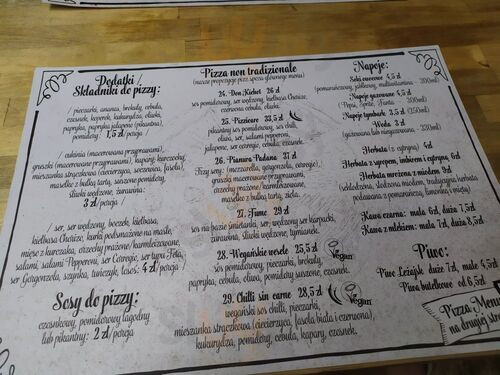 Dodatki /
Składniki do pizzy:
/ pieczarki, ananas, brokuły, cebula,
czosnek, koperek, kukurydza, oliwki,
papryka, papryka jalapeno (pikantna),
pomidory: 1,5 zł / porcja
/ cukinia (macerowana przyprawami),
gruszki (macerowane przyprawami), kapary, karczochy,
mieszanka strączkowa (ciecierzyca, soczewica, fasola),
masełko z bułką tartą, suszone pomidory,
śliwki wędzone, żurawina:
3 zł / porcja
/ ser, ser wędzony, boczek, kiełbasa,
kiełbasa Chorizo, kurki podsmażone na maśle,
mięso z kurczaka, orzechy prażone/karmelizowane,
salami, salami Pepperoni, ser Corregio, ser typu Feta,
ser Gorgonzola, szynka, tuńczyk, łosoś: 4 zł / porcja
Sosy do pizzy:
czosnkowy, pomidorowy łagodny
lub pikantny: 2 zł/porcja
Pizza non tradizionale
(nasze propozycje pizz spoza głównego menu)
24. Don Kichot 26 zł
sos pomidorowy, ser wędzony, kiełbasa Chorizo,
czerwona cebula, oliwki
25. Pizzicare 33,5 zł
pikantny sos pomidorowy, sos chilli,
oliwa, ser, salami pepperoni,
jalapeno, ser corregio, cebula, czosnek
26. Pianura Padana 37 zł
Trzy sery: (mozzarella, gorgonzola, corregio),
gruszki macerowane przyprawami,
orzechy prażone / karmelizowane,
masełko z bułką tartą, zioła
27. Fume 29 zł
sos na bazie śmietanki, ser, wędzony ser karpacki,
żurawina, śliwki wędzone, tymianek
28. Wegańskie wesele 25,5 zł
sos pomidorowy, pieczarki, papryka, brokuły,
papryka, cebula, oliwa, pomidory suszone, czosnek
Vegan
29. Chilli sin carne 28,5 zł
wegański sos chilli, pieczarki,
mieszanka strączkowa (ciecierzyca, fasola biała i czerwona),
kukurydza, pomidory, cebula, kapary, czosnek
Vegan
Napoje:
Soki owocowe 4,5 zł
(pomarańczowy, jabłkowy, multiwitamina - 200ml)
Napoje gazowane 4,5 zł
(Pepsi, Mirinda,
Napoje tymbark 3,5 zł (250ml)
Woda 3 zł
(gazowana lub niegazowana - 330ml)
Herbata 4zł
Herbata z syropem, imbirem i cytryną 6zł
Herbata mrożona z miodem 9zł
(schłodzona, słodzona miodem, tradycyjna herbata
podawana z pomarańczą, limonką i miętą)
Kawa czarna: mała 6zł, duża 7,5
Kawa z mlekiem: mała 7zł, duża 8,5
Piwo:
Piwo Leżajsk duże 7zł, małe 4,5zł
Piwo butelkowe od 6,5zł
Pizza Menu
na drugiej str